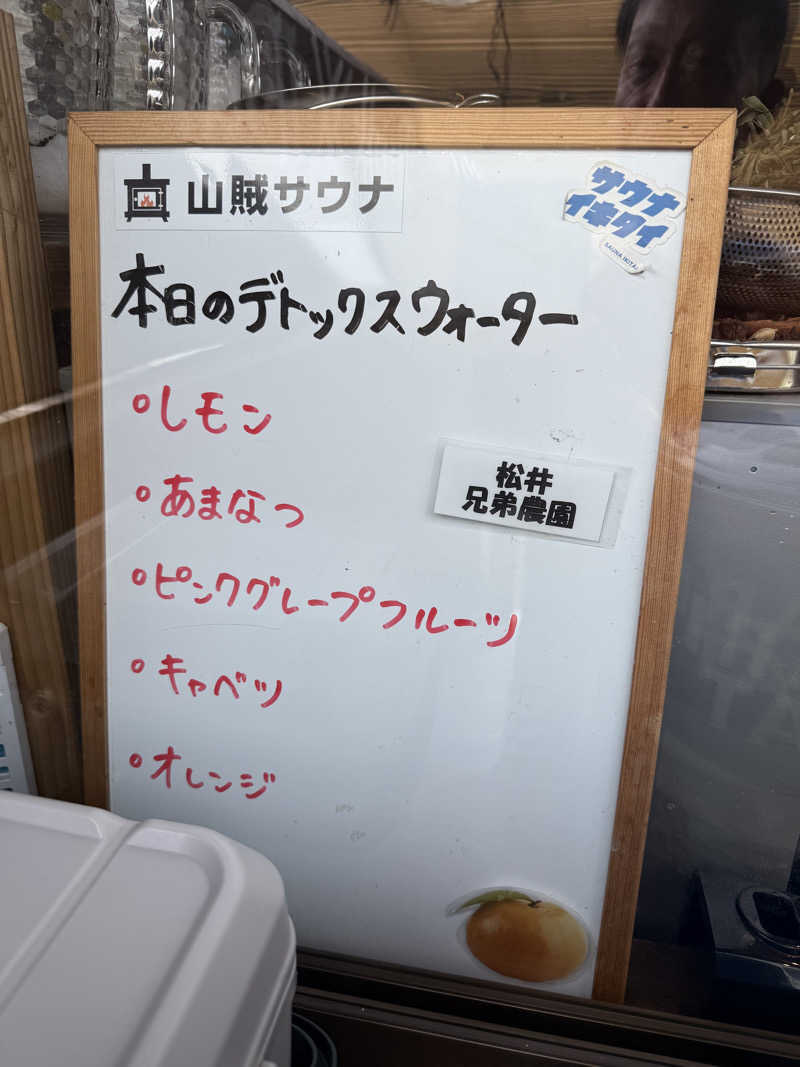 山賊サウナ
サウナ
イキタイ
SAUNA IKITAI
本日のデトックスウォーター
°レモン
°あまなつ
松井
兄弟農園
°ピンクグレープフルーツ
°キャベツ
°オレンジ